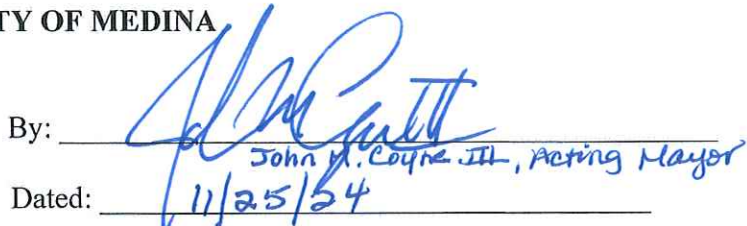 TY OF MEDINA
By:
John M. Coyne III, Acting Mayor
Dated: 11/25/24